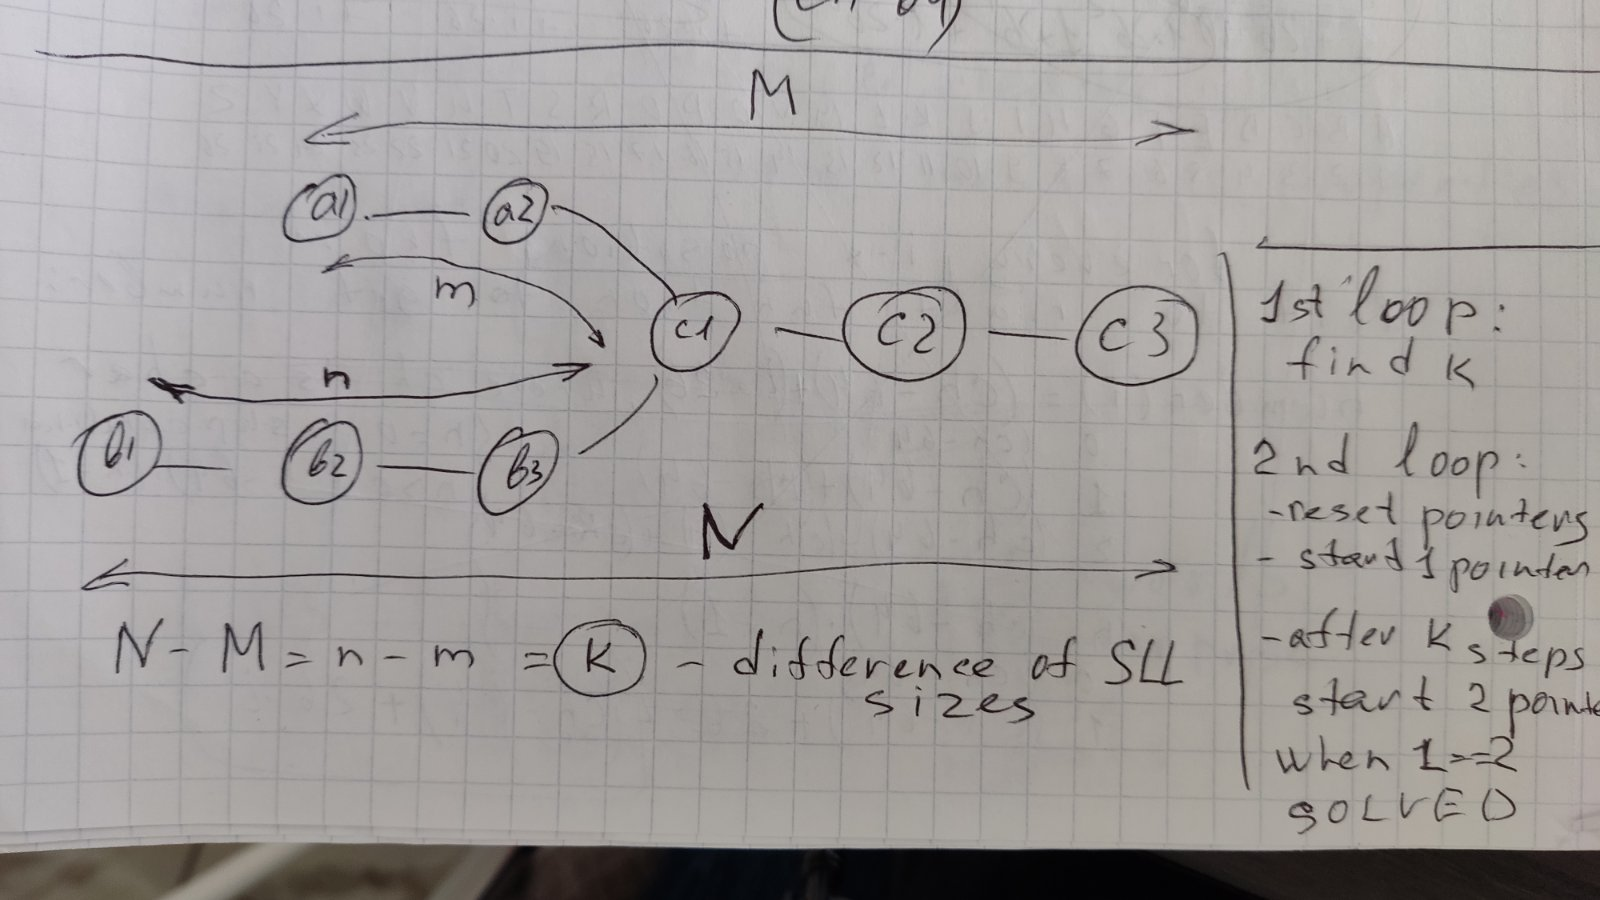 M
a1 a2
m
c1 c2 c3
n
b1 b2 b3
N
N - M = n - m = K - difference of SLL
sizes
1st loop:
find K
2nd loop:
- reset pointers
- start 1 pointer
- after K steps
start 2 pointe
when 1==2
SOLVED